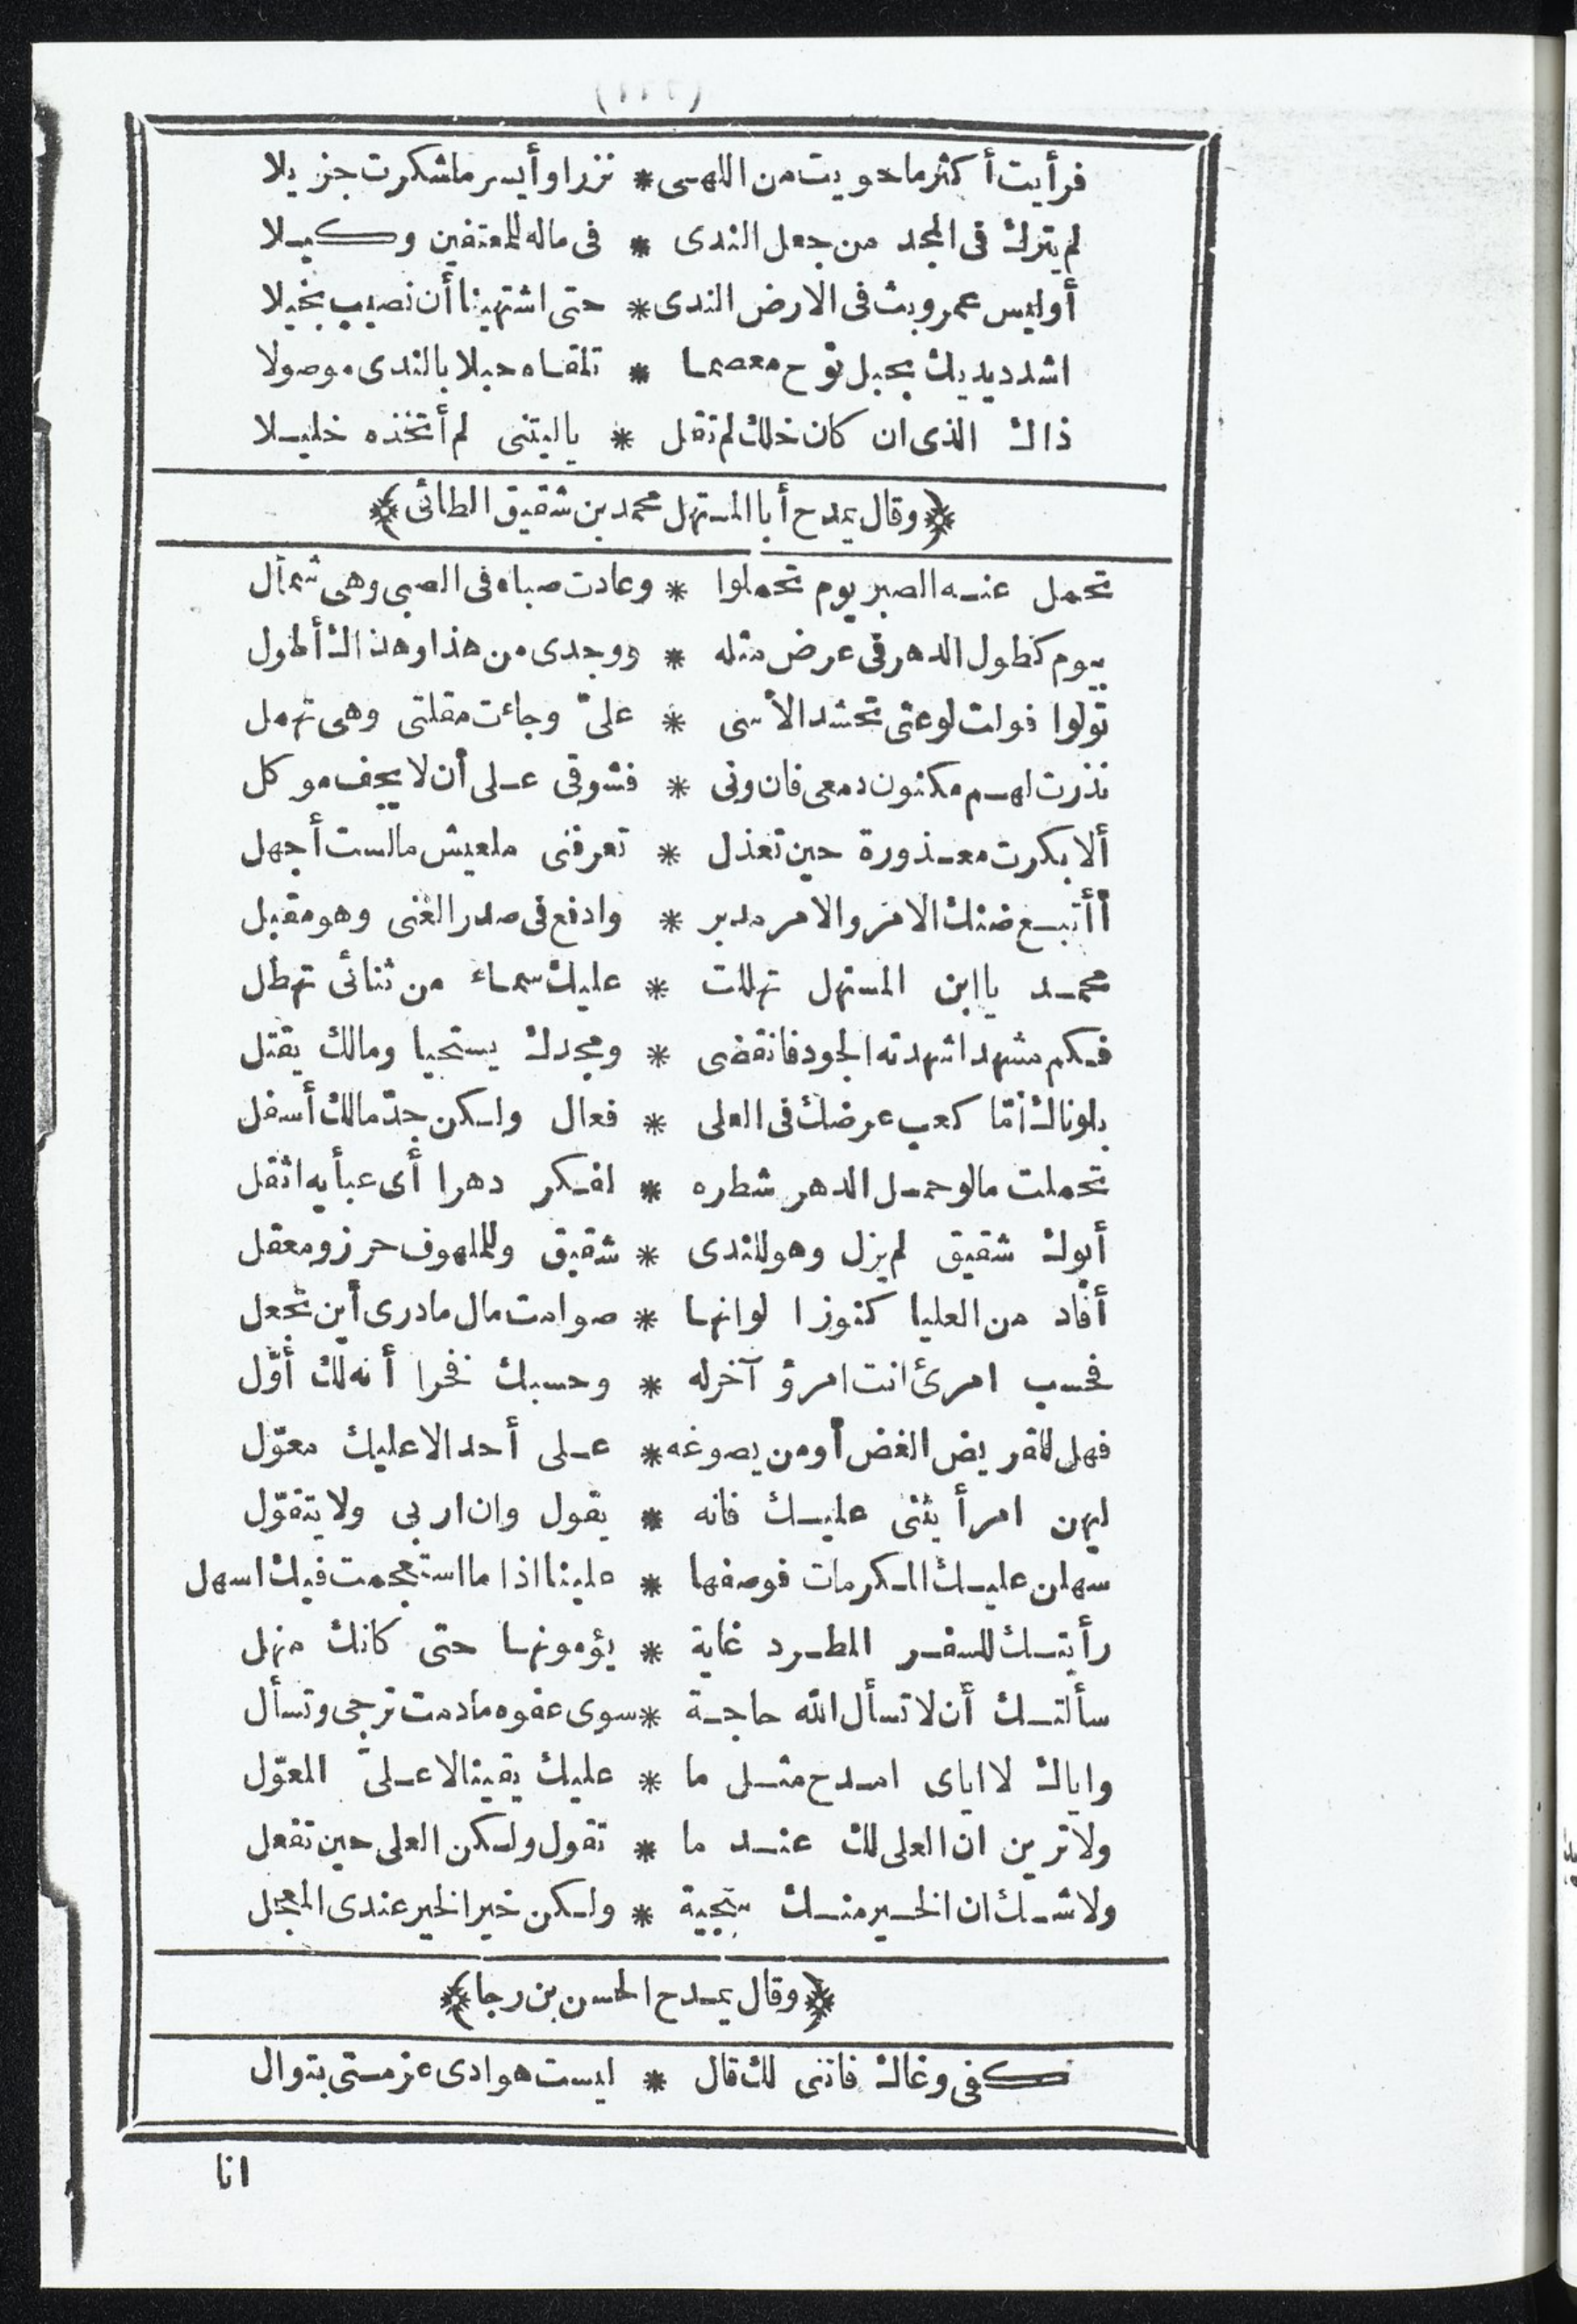 فرأيت أكثر ما حويت من اللهى * نزرا وأيسر ما شكرت جزيلا
لم يترك فى المجد من جعل الندى * فى ماله للمعتفين وكيلا
أوليس عمرو بث فى الارض الندى * حتى اشتهينا أن نصيب بخيلا
اشدد يديك بحبل نوح معصما * تلقاه حبلا بالندى موصولا
ذاك الذى ان كان خلك لم تقل * ياليتنى لم أتخذه خليلا
﴿وقال يمدح أبا المستهل محمد بن شقيق الطائى﴾
تحمل عنه الصبر يوم تحملوا * وعادت صباه فى الصبى وهى شمأل
بيوم كطول الدهر فى عرض مثله * ووجدى من هذا وهذاك أطول
تولوا فولت لوعتى تحشد الأسى * علىّ وجاءت مقلتى وهى تهمل
نذرت لهم مكنون دمعى فان ونى * فشوقى على أن لا يجف موكل
ألا بكرت معذورة حين تعذل * تعرفنى ملعيش مالست أجهل
أأتبع ضنك الامر والامر مدبر * وادفع فى صدر الغنى وهو مقبل
محمد ياابن المستهل تهللت * عليك سماء من ثنائى تهطل
فكم مشهد اشهدته الجود فانقضى * ومجدك يستحيا ومالك يقتل
بلوناك أمّا كعب عرضك فى العلى * فعال ولكن جدّ مالك أسفل
تحملت مالو حمل الدهر شطره * لفكر دهرا أى عبأيه اثقل
أبوك شقيق لم يزل وهو للندى * شقيق وللملهوف حرز ومعقل
أفاد من العليا كنوزا لوانها * صوامت مال مادرى أين تجعل
فحسب امرئ انت امرؤ آخرله * وحسبك فخرا أنه لك أوّل
فهل للقريض الغض أو من يصوغه * على أحد الا عليك معوّل
ليهن امرأ يثنى عليك فانه * يقول وان اربى ولا يتقوّل
سهلن عليك المكرمات فوصفها * علينا اذا مااستجمعت فيك اسهل
رأيتك للسفر المطرد غاية * يؤمونها حتى كانك منهل
سألتك أن لا تسأل الله حاجة * سوى عفوه مادمت ترجى وتسأل
واياك لا اياى امدح مثل ما * عليك يقينا لا علىّ المعوّل
ولاترين ان العلى لك عند ما * تقول ولكن العلى حين تفعل
ولاشك ان الخير منك سجية * ولكن خير الخير عندى المعجل
﴿وقال يمدح الحسن بن رجا﴾
كفى وغاك فاننى لك قال * ليست هوادى عزمتى بتوال
انا